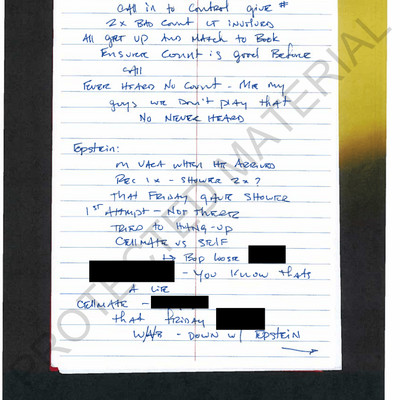 Call in to Control give #
2x Bad Count LT involved
All get up and match to Book
Ensure Count is good Before
call
Ever heard no count - Me my
guys we don't play that
No never heard
Epstein:
on vaca when he arrived
Rec 1x - Shower 2x?
That Friday gave shower
1st Attempt - Not there
Tried to hang-up
Cellmate vs self
↳ Bad Loose
- You know thats
a lie
Cellmate -
that friday
- down w/ Epstein
PROTECTED MATERIAL